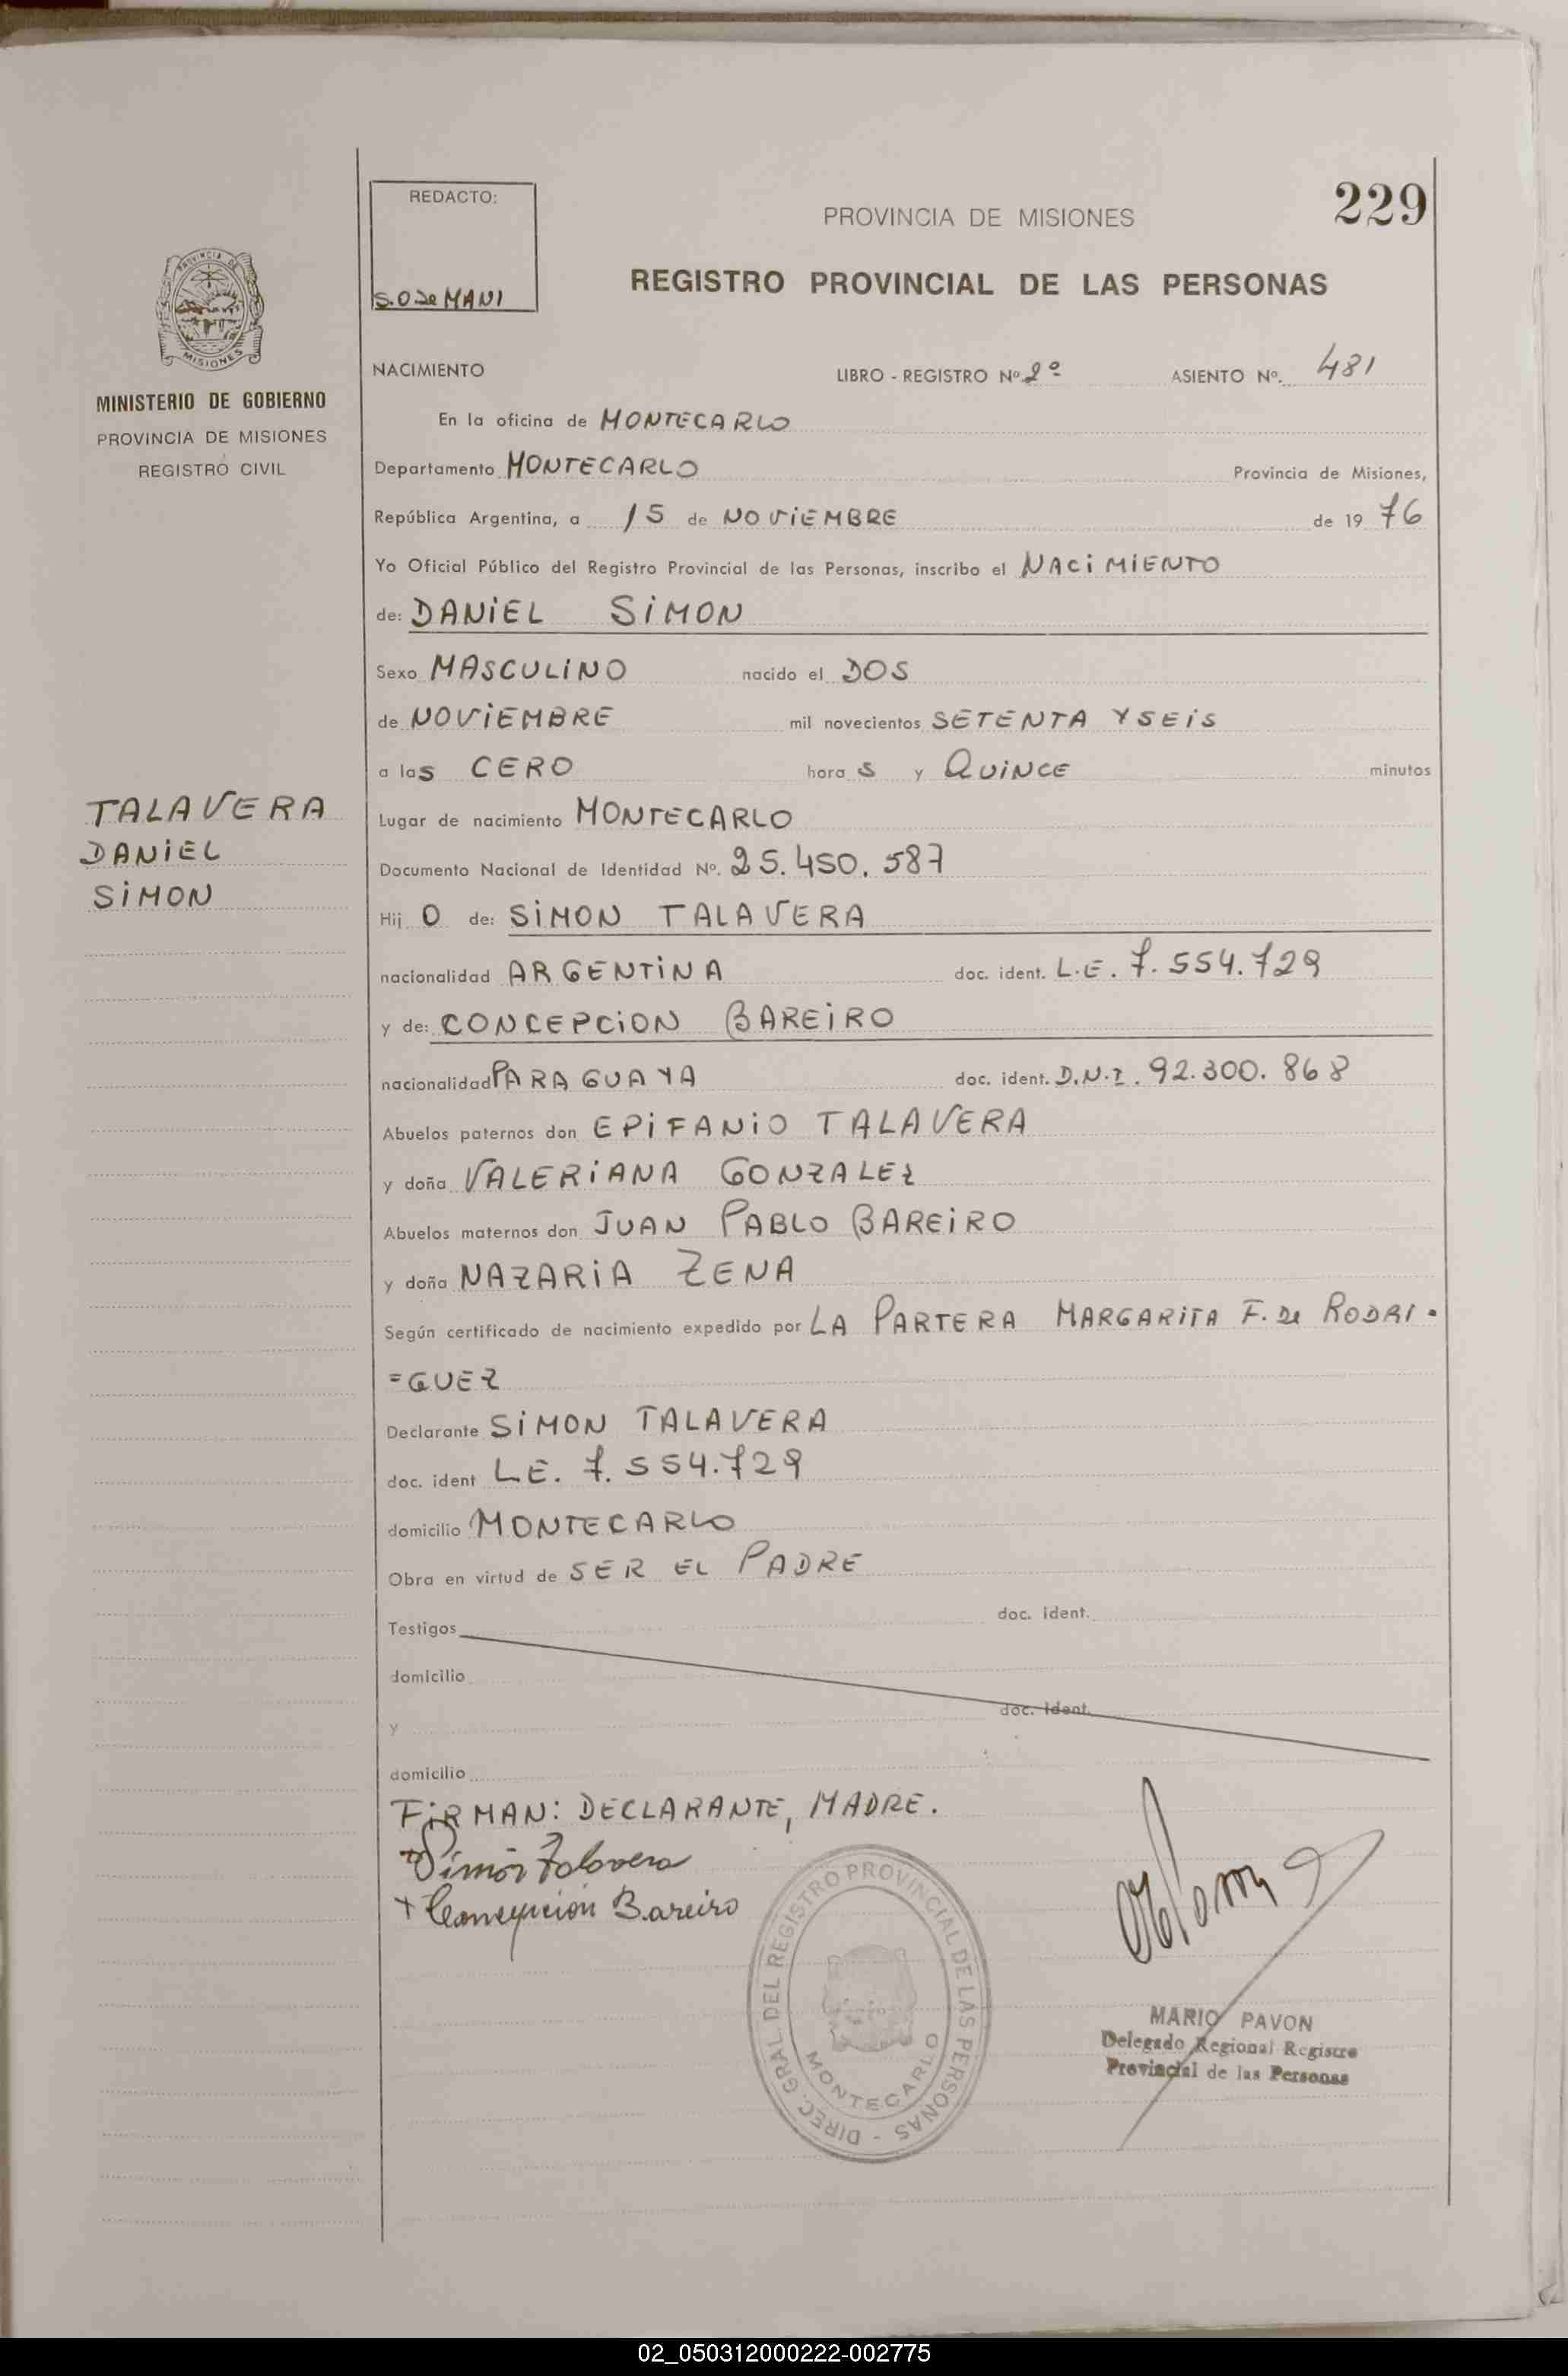 REDACTO:
S.O De MANI
PROVINCIA DE MISIONES
229
REGISTRO PROVINCIAL DE LAS PERSONAS
PROVINCIA DE
MISIONES
MINISTERIO DE GOBIERNO
PROVINCIA DE MISIONES
REGISTRO CIVIL
NACIMIENTO LIBRO - REGISTRO Nº 2º ASIENTO Nº. 481
En la oficina de MONTECARLO
Departamento MONTECARLO Provincia de Misiones,
República Argentina, a 15 de NOViEMBRE de 19 76
Yo Oficial Público del Registro Provincial de las Personas, inscribo el NACiMiENTO
de: DANiEL SiMON
Sexo MASCULiNO nacido el DOS
de NOViEMBRE mil novecientos SETENTA Y SEiS
a las CERO hora s y QUiNCE minutos
TALAVERA
DANiEL
SiMON
Lugar de nacimiento MONTECARLO
Documento Nacional de Identidad Nº. 25.450.587
Hij O de: SiMON TALAVERA
nacionalidad ARGENTiNA doc. ident. L.E. 7.554.729
y de: CONCEPCiON BAREiRO
nacionalidad PARAGUAYA doc. ident. D.N.I. 92.300.868
Abuelos paternos don EPiFANiO TALAVERA
y doña VALERiANA GONZALEZ
Abuelos maternos don JUAN PABLO BAREiRO
y doña NAZARiA ZENA
Según certificado de nacimiento expedido por LA PARTERA MARGARiTA F. De RODRI-
=GUEZ
Declarante SiMON TALAVERA
doc. ident LE. 7.554.729
domicilio MONTECARLO
Obra en virtud de SER EL PADRE
Testigos doc. ident.
domicilio
y doc. ident.
domicilio
FiRMAN: DECLARANTE, MADRE.
Simón Talavera
+ Concepción Bareiro
DIREC. GRAL. DEL REGISTRO PROVINCIAL DE LAS PERSONAS -
MONTECARLO
MARIO PAVON
Delegado Regional Registro
Provincial de las Personas
02_050312000222-002775